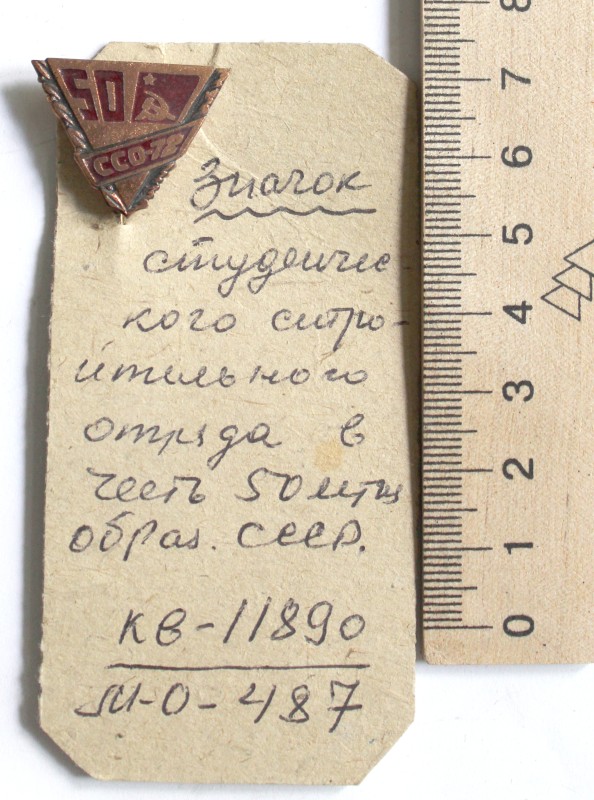 50
ССО-72
Значок
студенчес
кого строи-
ительного
отряда в
честь 50летия
образ. СССР.
КВ-11890
М-О-487
8
7
6
5
4
3
2
1
0